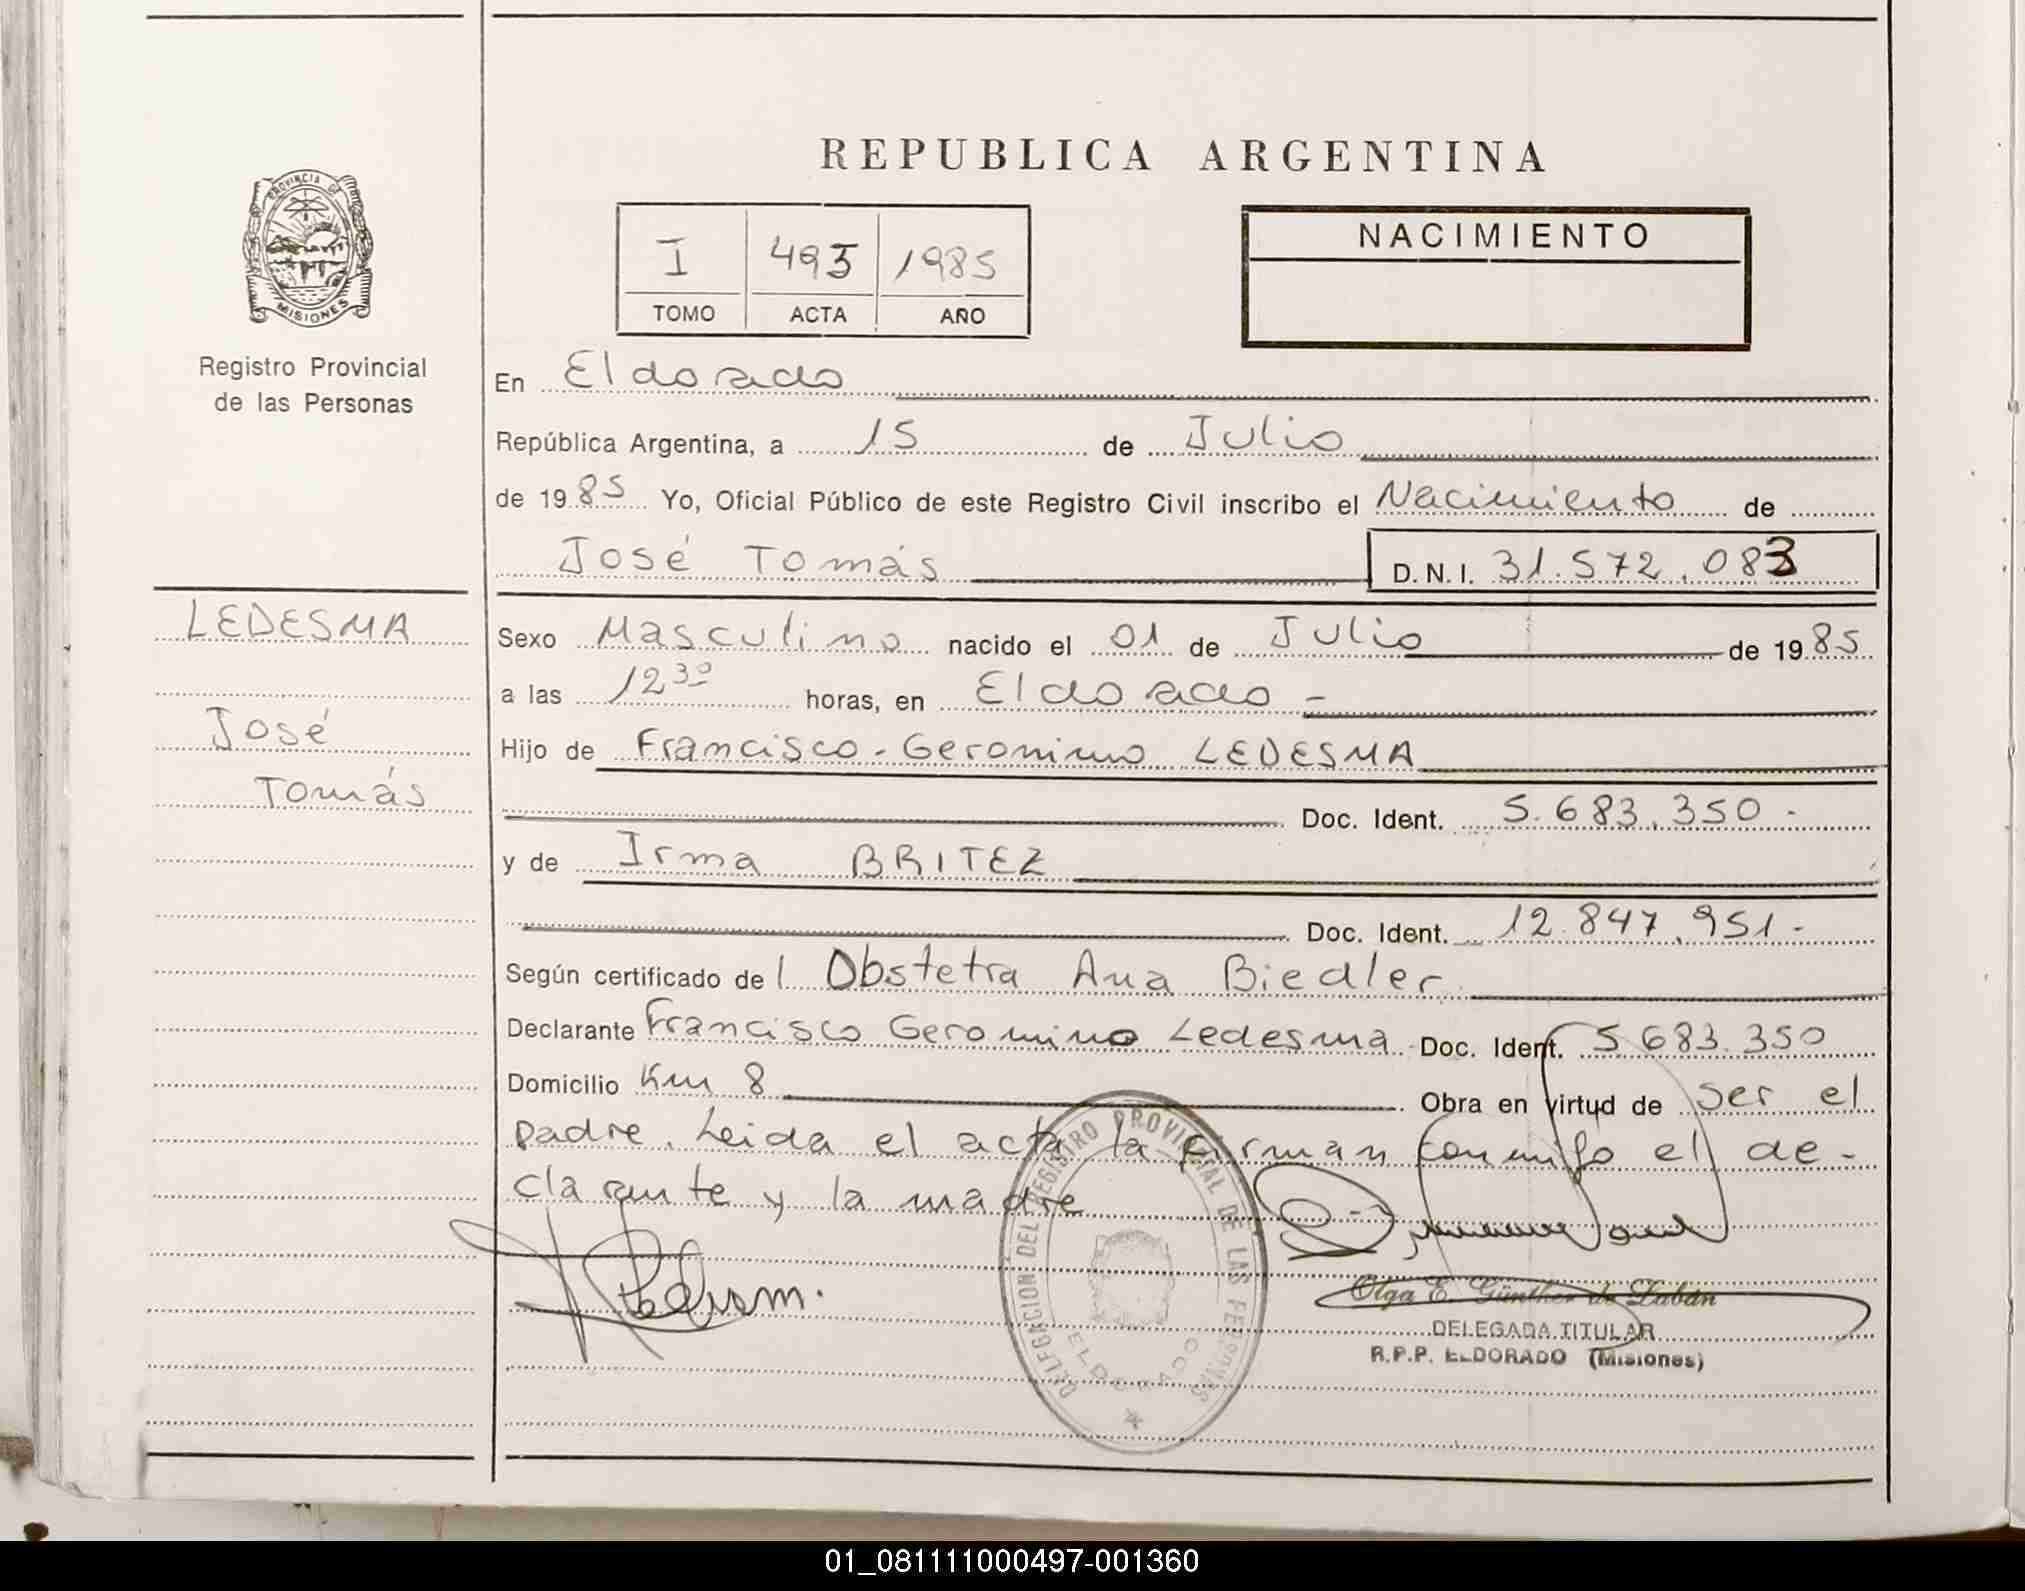 REPUBLICA ARGENTINA
PROVINCIA DE
MISIONES
Registro Provincial
de las Personas
I 495 1985
TOMO ACTA AÑO
NACIMIENTO
En Eldorado
República Argentina, a 15 de Julio
de 1985 Yo, Oficial Público de este Registro Civil inscribo el Nacimiento de
José Tomás D.N.I. 31.572.083
LEDESMA
José
Tomás
Sexo Masculino nacido el 01 de Julio de 1985
a las 12 30 horas, en Eldorado -
Hijo de Francisco-Geronimo LEDESMA
Doc. Ident. 5.683.350-
y de Irma BRITEZ
Doc. Ident. 12.847.951-
Según certificado de l Obstetra Ana Biedler
Declarante Francisco Geronimo Ledesma Doc. Ident. 5.683.350
Domicilio Km 8 Obra en virtud de ser el
padre. Leida el acta la firman conmigo el de-
clarante y la madre
DELEGACION DEL REGISTRO PROVINCIAL DE LAS PERSONAS
ELDORADO
Olga E. Günther de Zabán
DELEGADA TITULAR
R.P.P. ELDORADO (Misiones)
01_081111000497-001360